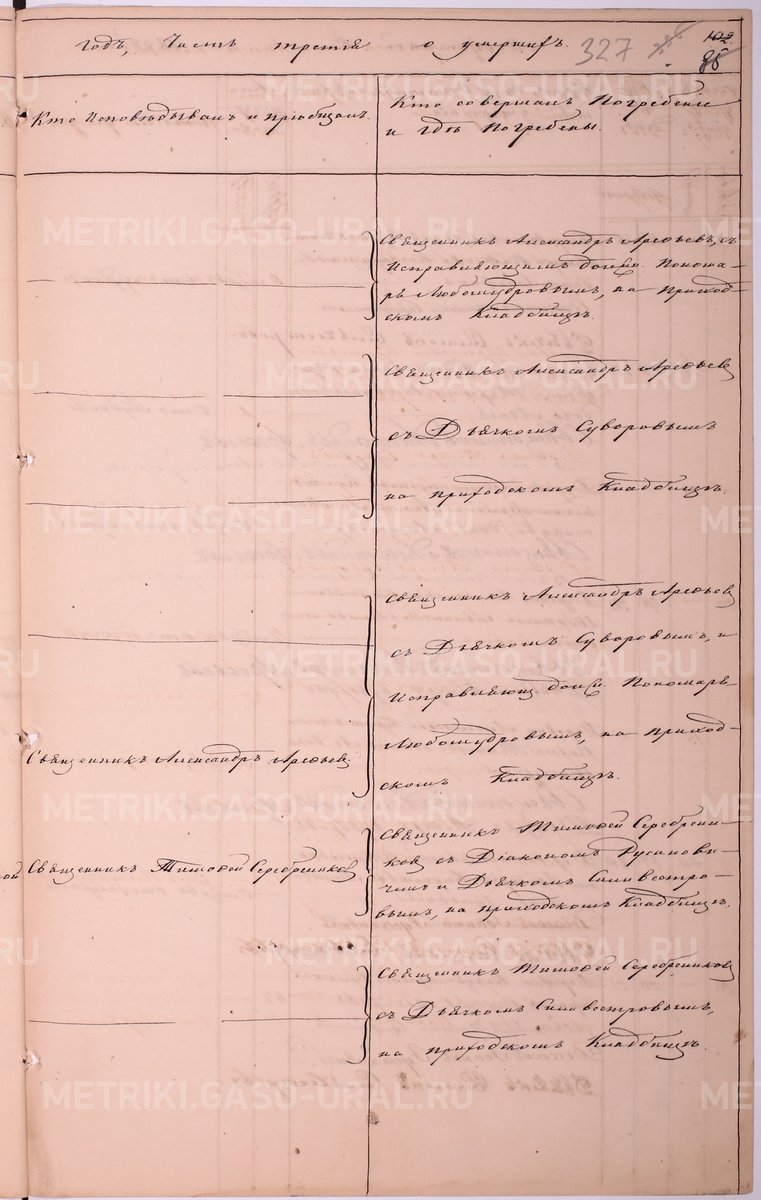 годъ, Часть третія о умершихъ. 327 102
88
Кто исповѣдывалъ и пріобщалъ.
Кто совершалъ погребеніе
и гдѣ погребены.
Священникъ Александръ Арефьевъ, съ
исправляющимъ долж. Понома-
рь Любомудровымъ, на приход-
скомъ кладбищѣ.
Священникъ Александръ Арефьевъ
съ Дьячкомъ Суворовымъ
на приходскомъ кладбищѣ.
Священникъ Александръ Арефьевъ
съ Дьячкомъ Суворовымъ, и
исправляющ. долж. Пономарь
Любомудровымъ, на приход-
скомъ кладбищѣ.
Священникъ Александръ Арефьевъ.
Священникъ Тимофей Серебрени-
ковъ съ Діакономъ Русанови-
чемъ и Дьячкомъ Сильвестро-
вымъ, на приходскомъ кладбищѣ.
ой Священникъ Тимофей Серебренниковъ
Священникъ Тимофей Серебрениковъ
съ Дьячкомъ Сильвестровымъ,
на приходскомъ кладбищѣ.
METRIKI.GASO-URAL.RU